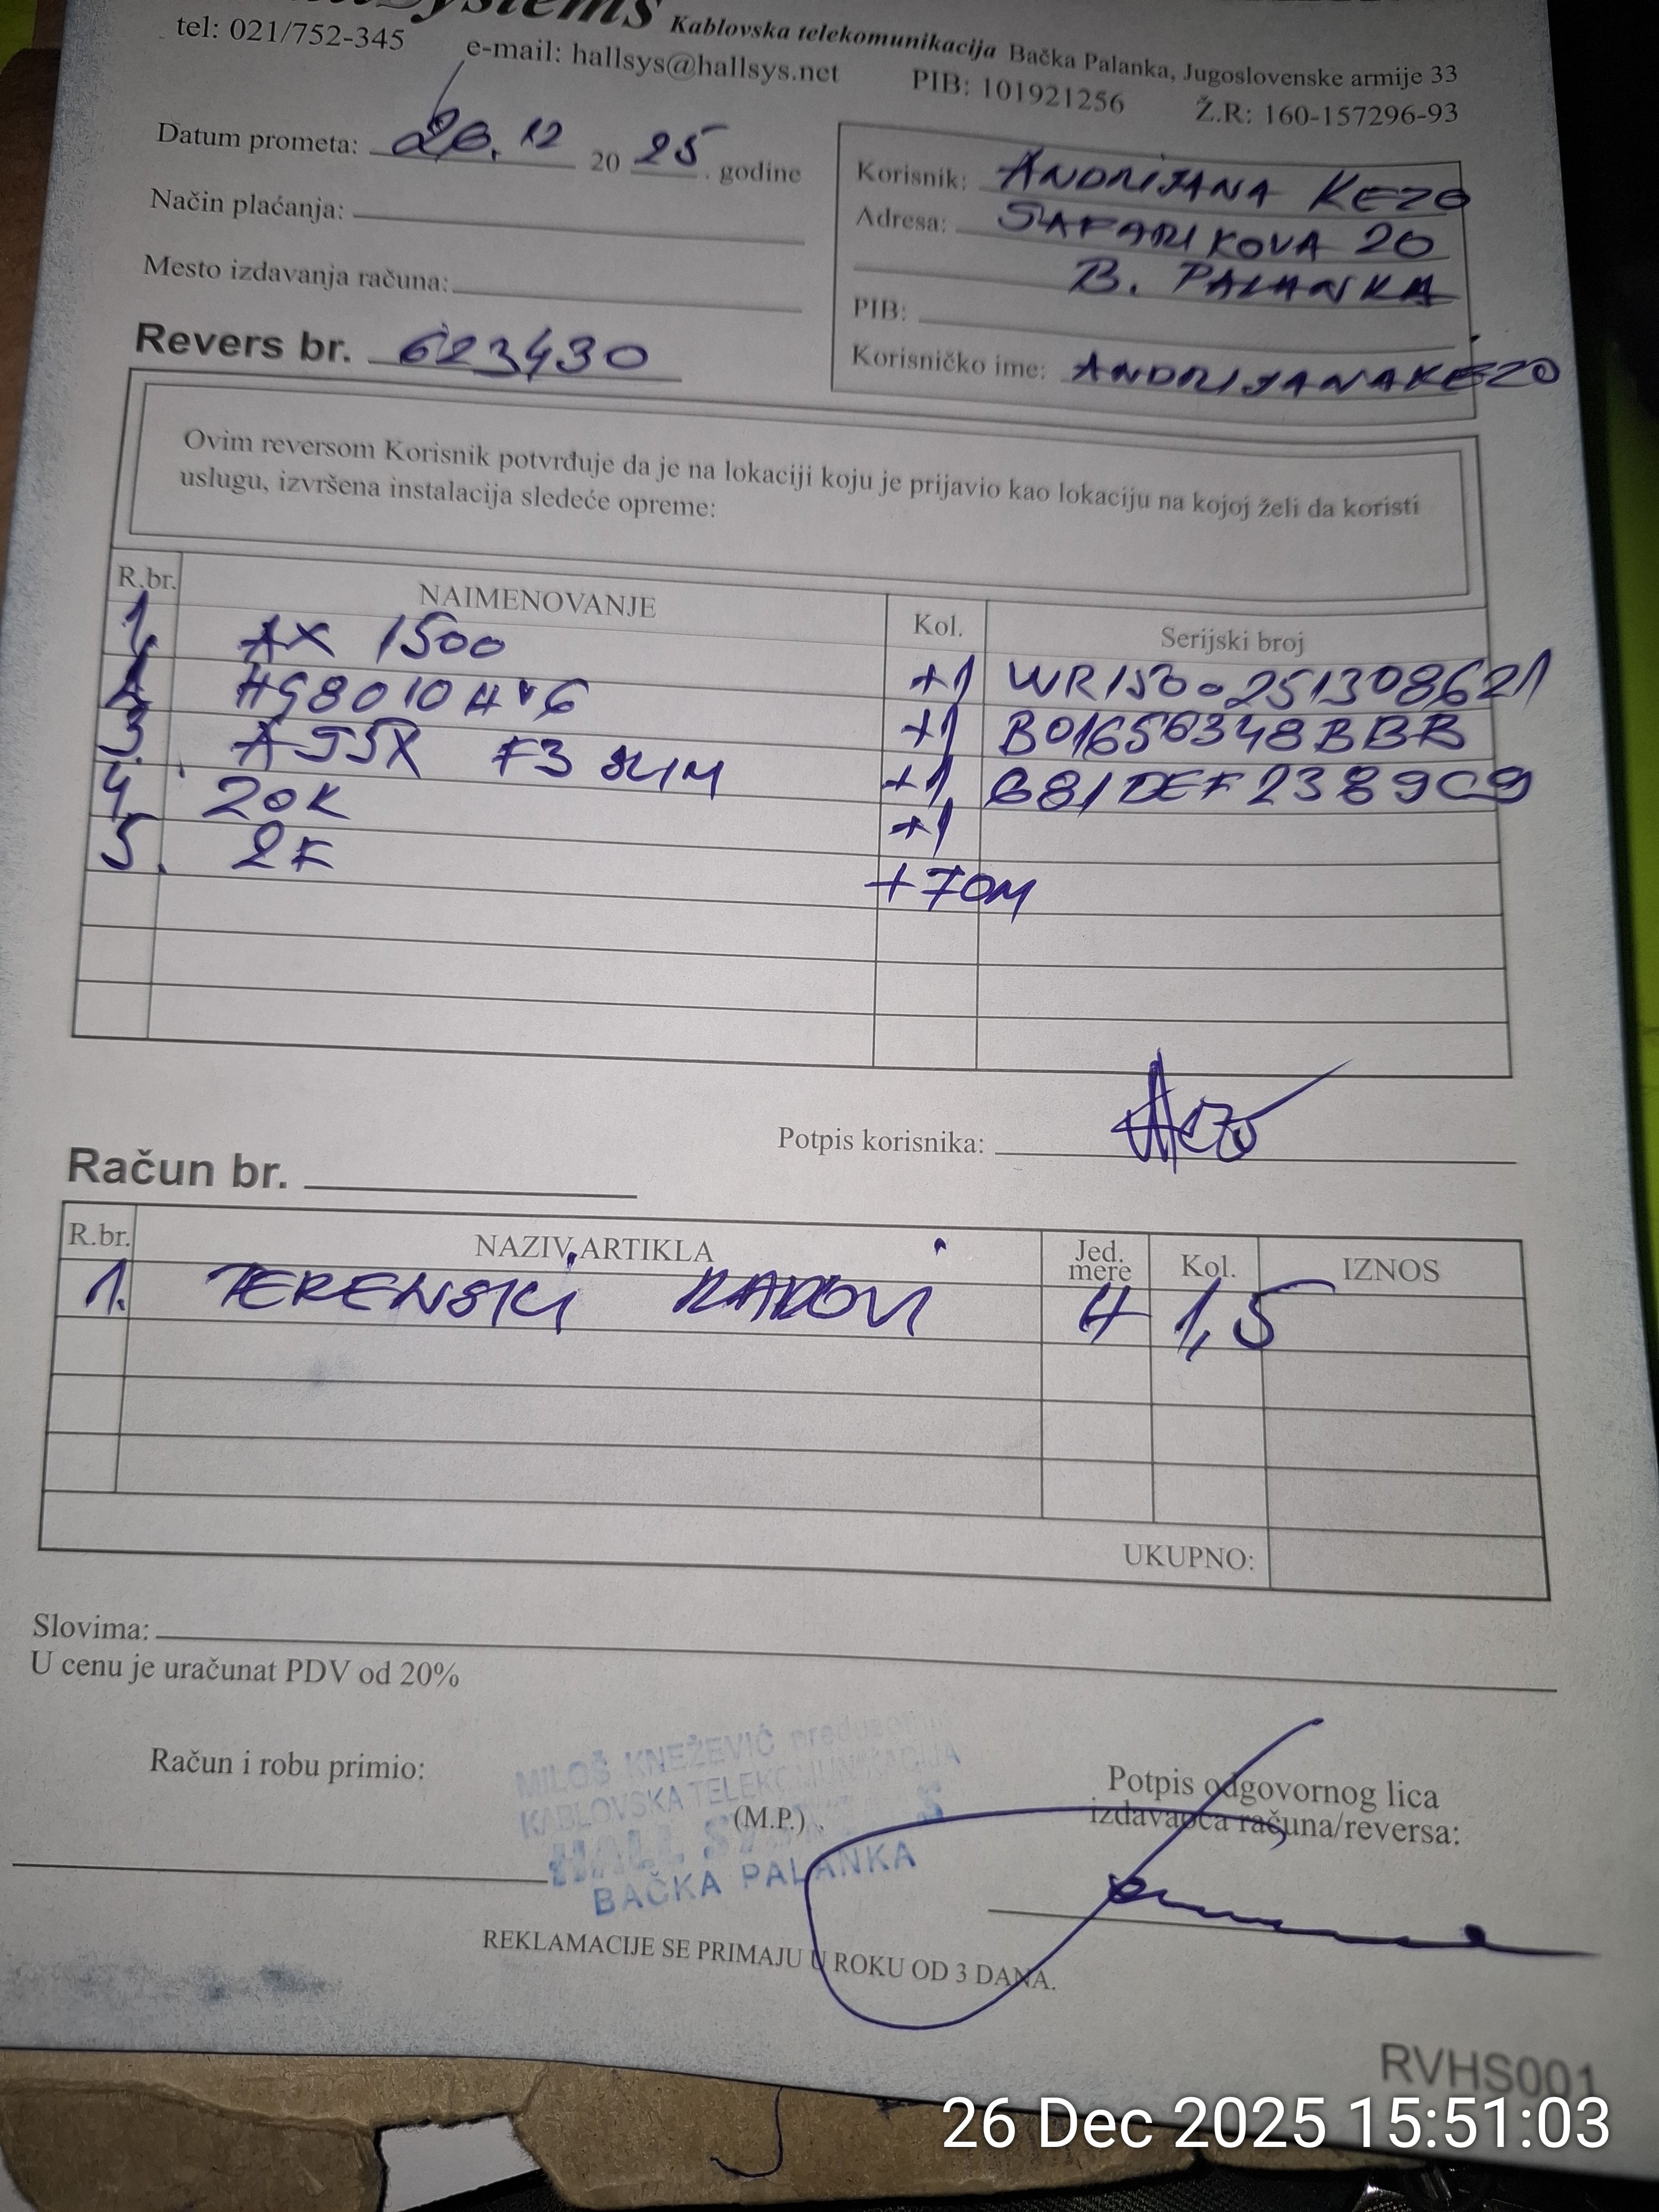 Systems Kablovska telekomunikacija Bačka Palanka, Jugoslovenske armije 33
tel: 021/752-345 e-mail: hallsys@hallsys.net PIB: 101921256 Ž.R: 160-157296-93
Datum prometa: 26.12 2025. godine
Način plaćanja:
Mesto izdavanja računa:
Revers br. 623430
Korisnik: ANDRIJANA KEZO
Adresa: ŠAFARIKOVA 20
B. PALANKA
PIB:
Korisničko ime: ANDRIJANAKEZO
Ovim reversom Korisnik potvrđuje da je na lokaciji koju je prijavio kao lokaciju na kojoj želi da koristi
uslugu, izvršena instalacija sledeće opreme:
R.br. NAIMENOVANJE Kol. Serijski broj
1. AX 1500 +1 WR1500251308621
2. HG8010H V6 +1 B01656348BBB
3. A95X F3 SLIM +1 681DEF2389C9
4. ZOK +1
5. 2F +70M
Potpis korisnika:
Račun br.
R.br. NAZIV ARTIKLA Jed. mere Kol. IZNOS
1. TERENSKI RADOVI H 1,5
UKUPNO:
Slovima:
U cenu je uračunat PDV od 20%
Račun i robu primio:
MILOŠ KNEŽEVIĆ
KABLOVSKA TELEKOMUNIKACIJA
(M.P.)
BAČKA PALANKA
Potpis odgovornog lica
izdavaoca računa/reversa:
REKLAMACIJE SE PRIMAJU U ROKU OD 3 DANA.
RVHS001
26 Dec 2025 15:51:03